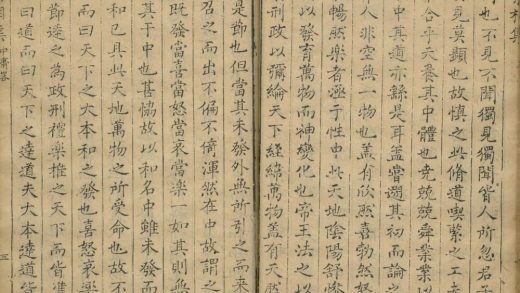 相集
也不見不聞獨見獨聞皆人所忽君子
見莫顯也故慎之此脩道喫緊之工夫
合乎天養其中體也堯兢兢舜業業
中其道亦繇是耳盖嘗遡其初而論之
人非空無一物也盖有欣然喜勃然怒
暢然樂者涵于性中此天地陰陽舒慘
以發育萬物而神變化也帝王法之以
刑政以彌綸天下經緯萬物盖有天然
是節也但當其未發外無所引之而來
召之而出不偏不倚渾然在中故謂之
既發當喜當怒當哀當樂一如其則無
其于中也甚恊故以和名中雖未發而
和已具此天地萬物之所受命也故不
而曰天下之大本和之發也喜怒哀樂
節達之為政刑禮樂推之天下而皆準
曰道而曰天下之達道夫大本達道皆
集 中庸答 三